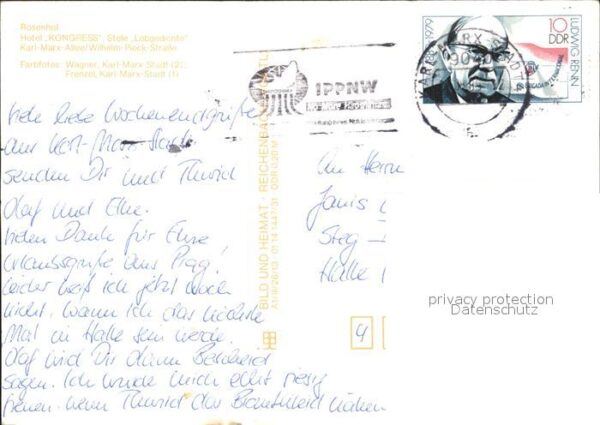 Rosenhof
Hotel „KONGRESS“, Stele „Lobgedichte“
Karl-Marx-Allee/Wilhelm-Pieck-Straße
Farbfotos: Wagner, Karl-Marx-Stadt (2);
Frenzel, Karl-Marx-Stadt (1)
Viele liebe Wochenendgrüße
aus Karl-Marx-Stadt
senden Dir und
Olaf und Elke.
Vielen Dank für Eure
Urlaubsgrüße aus Prag!
Leider weiß ich jetzt noch
nicht, wann ich das nächste
Mal in Halle sein werde.
Olaf wird Dir dann Bescheid
sagen. Ich würde mich echt riesig
freuen, wenn das Brautkleid nähen
BILD UND HEIMAT · REICHENBACH
DDR 0,20 M
IPPNW
KARL-MARX-STADT
1889-1979
10
DDR
LUDWIG RENN
An Herrn
Steg
Halle
4
privacy protection
Datenschutz